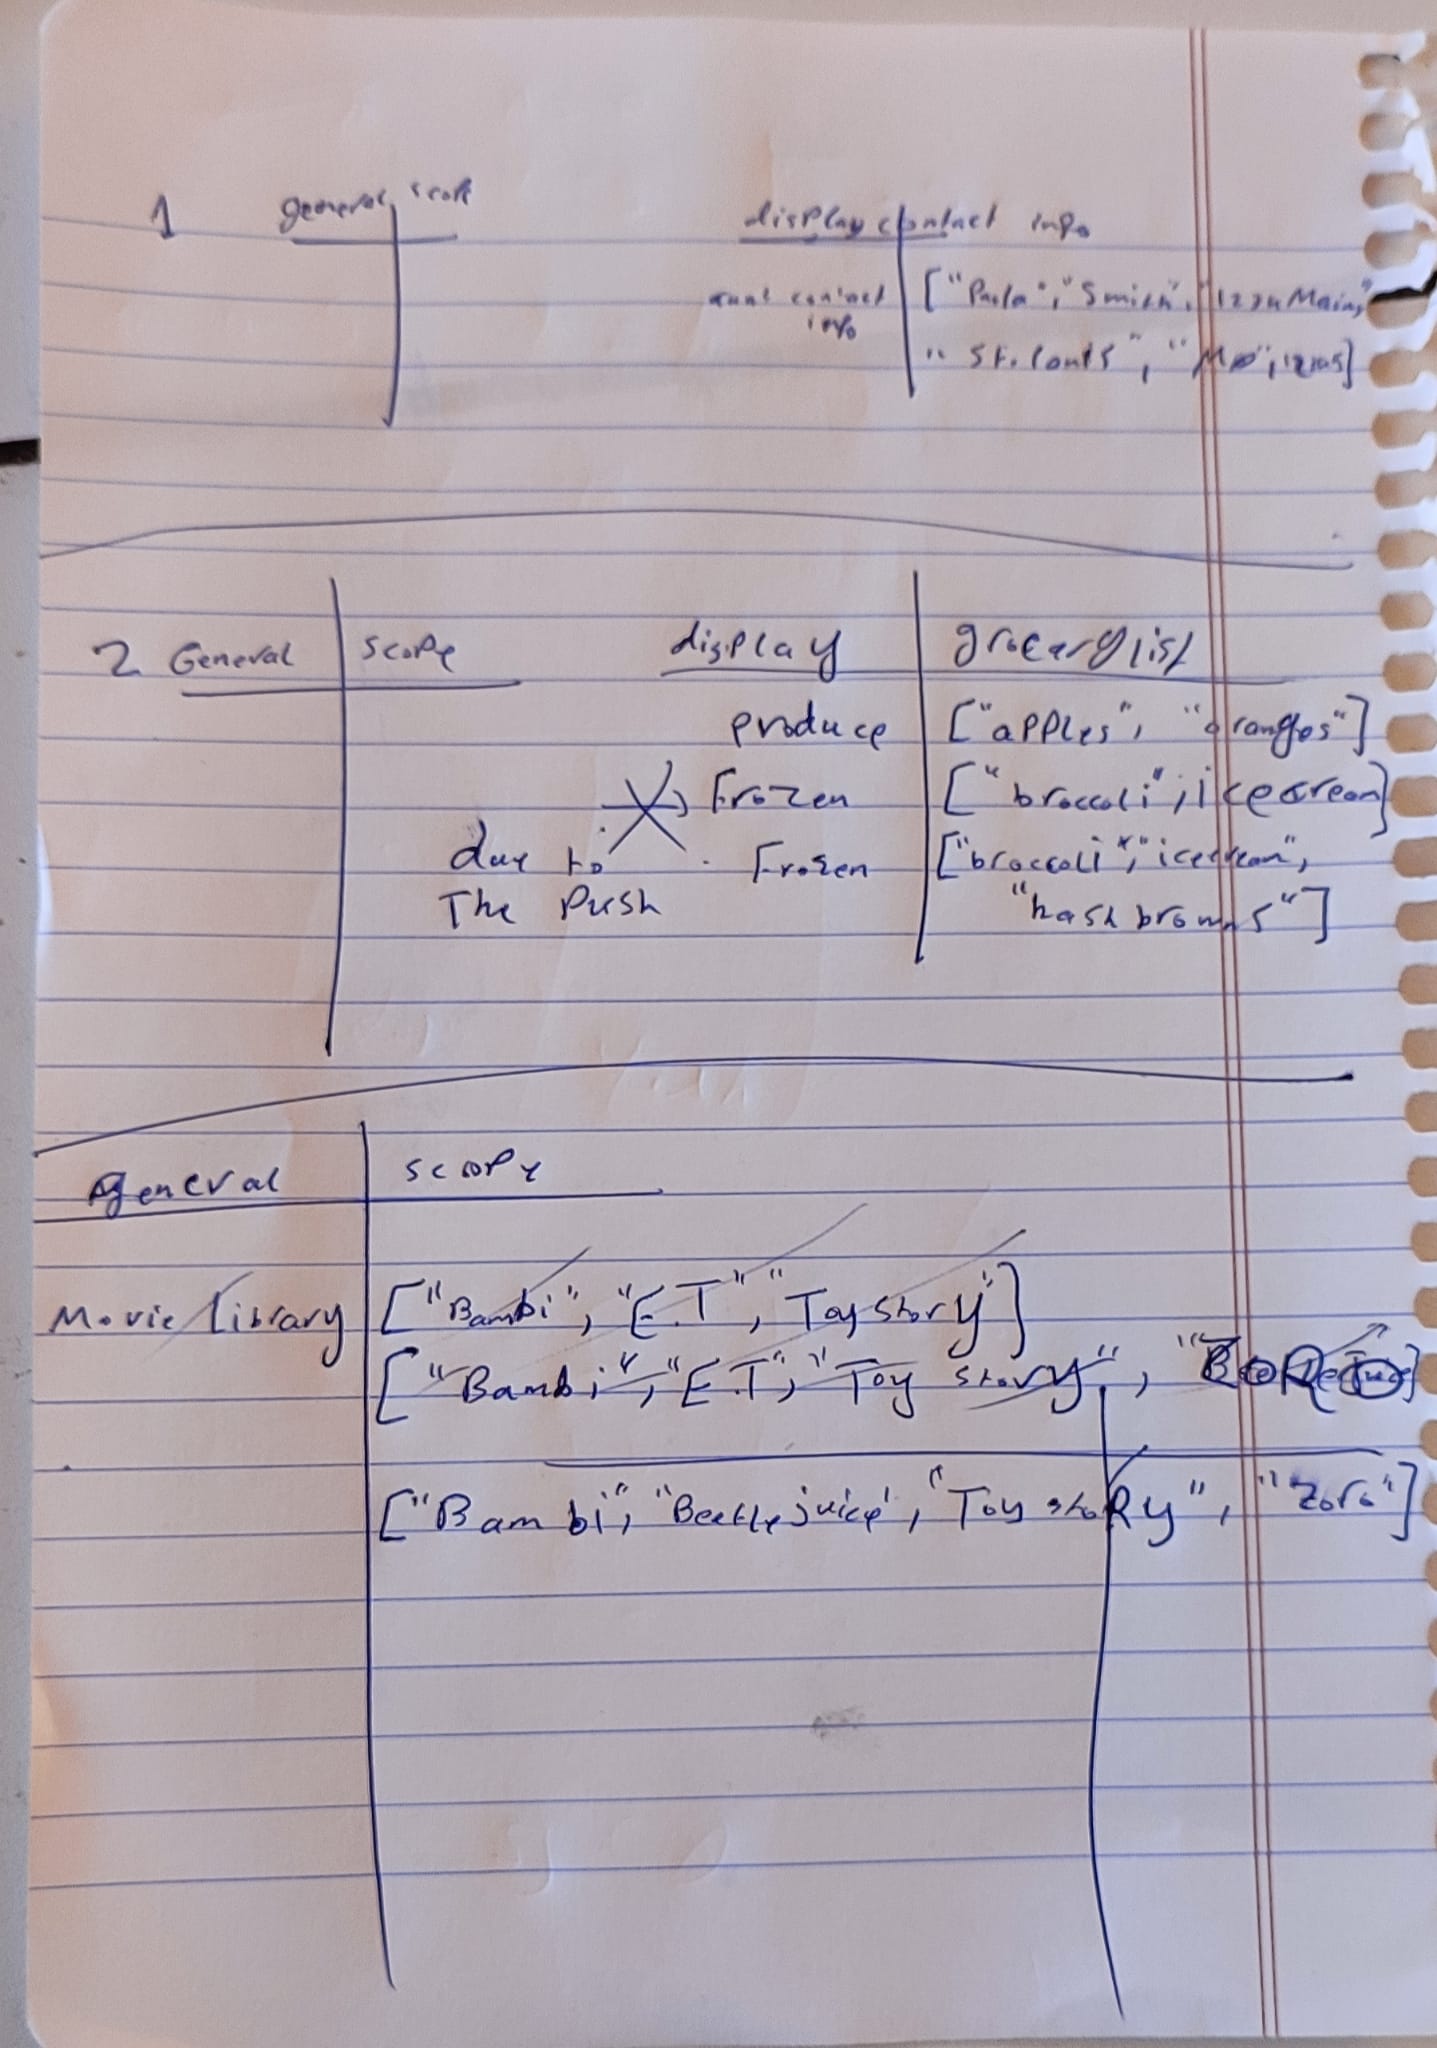 1 general scope
display contact info
aunt contact info ["Paula", "Smith", "1234 Main",
"St. Louis", "Mo", 12105]
2 General scope
display grocery list
produce ["apples", "oranges"]
Frozen ["broccoli", icecream]
due to The Push
Frozen ["broccoli", "icecream",
"hash browns"]
general scope
Movie library ["Bambi", "E.T", "Toy story"]
["Bambi", "E.T", "Toy story",
["Bambi", "Beetlejuice', "Toy stoRy", "Zoro"]